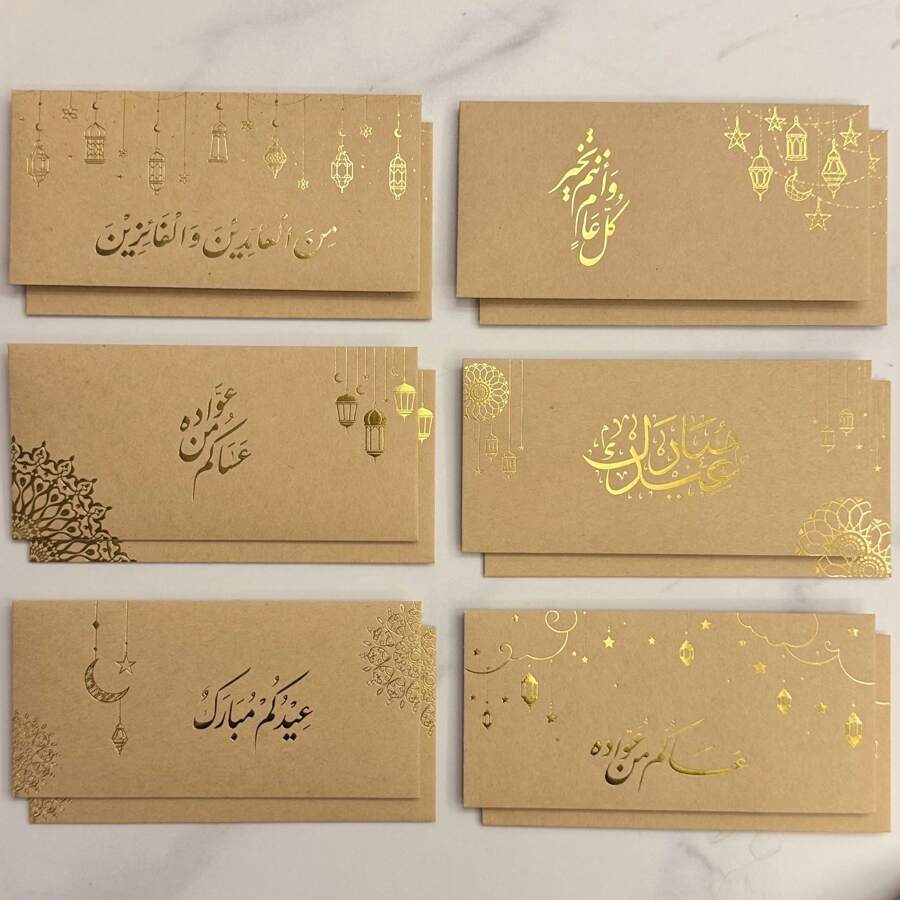 مِنَ الْعَائِدِيْنَ وَالْفَائِزِيْنَ
كُلّ عَامٍ
وَانْتُم بِخَيْر
عَسَاكُم
مِن
عُوَّاده
عِيْد
مُبَارَك
عِيْدُكُمْ مُبَارَكٌ
عَسَاكُم مِن عُوَّاده